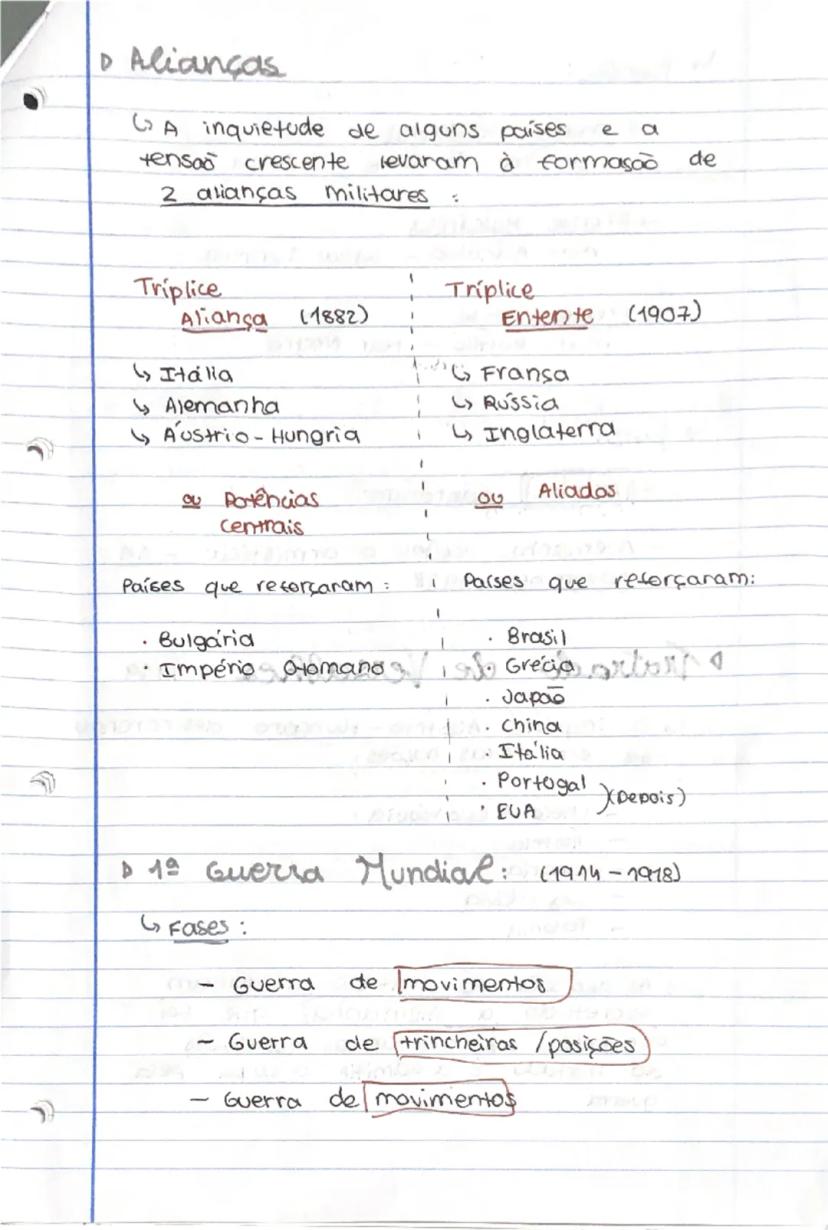 Alianças
↳ A inquietude de alguns países e a
tensaõ crescente levaram à formasaõ de
2 alianças militares :
Tríplice
Aliança (1882)
↳ Itália
↳ Alemanha
↳ Aústrio-Hungria
ou Potências
Centrais
Países que reforçaram :
· Bulgária
· Império Otomano
Tríplice
Entente (1907)
↳ Fransa
↳ Rússia
↳ Inglaterra
ou Aliados
Países que reforçaram:
· Brasil
· Grécia
· Japaõ
· China
· Itália
· Portugal
· EUA
(Depois)
1ª Guerra Mundial: (1914-1918)
↳ Fases :
- Guerra de movimentos
- Guerra de trincheiras /posições
- Guerra de movimentos